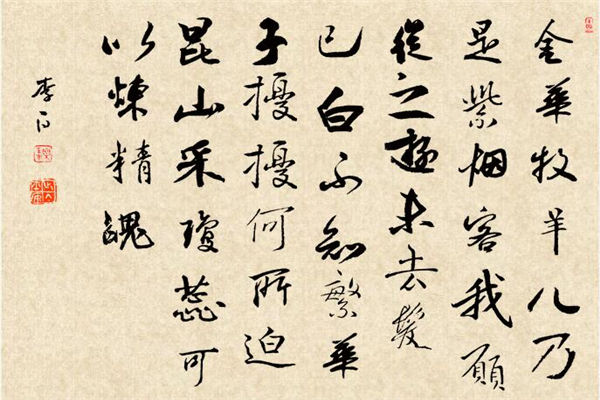 金華牧羊儿乃
是紫烟客我願
從之遊未去髮
已白不知繁華
子擾擾何所迫
昆山采瓊蕊可
以煉精魄
李白